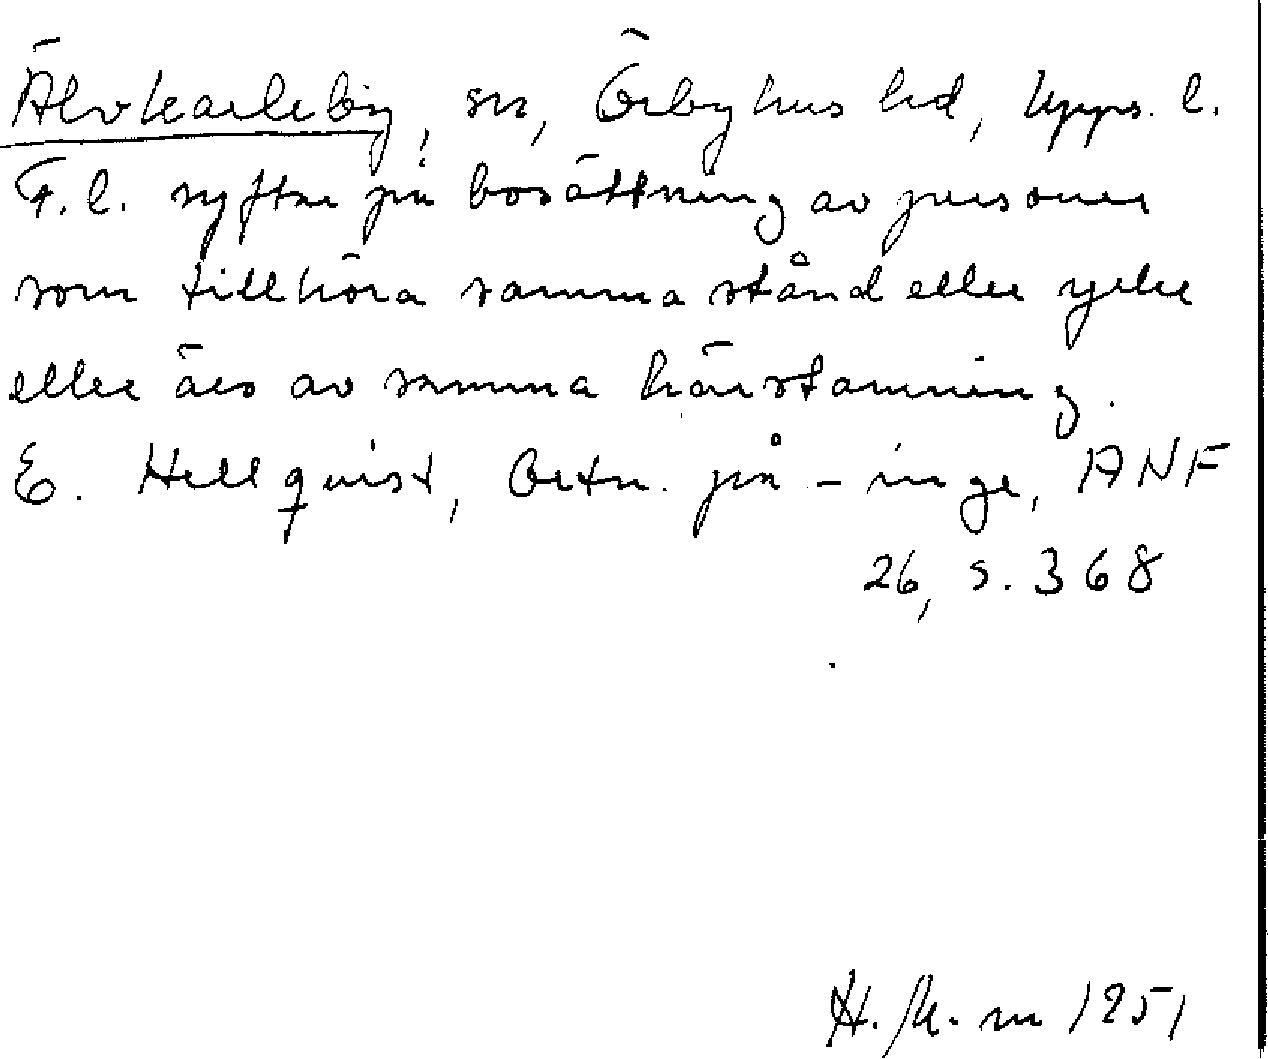 Älvkarleby, sn, Örbyhus hd, Upps. l.
F. l. syftar på bosättning av personer
som tillhöra samma stånd eller yrke
eller äro av samma härstamning.
E. Hellquist, Ortn. på -inge, ANF
26, s. 368
H. 1951